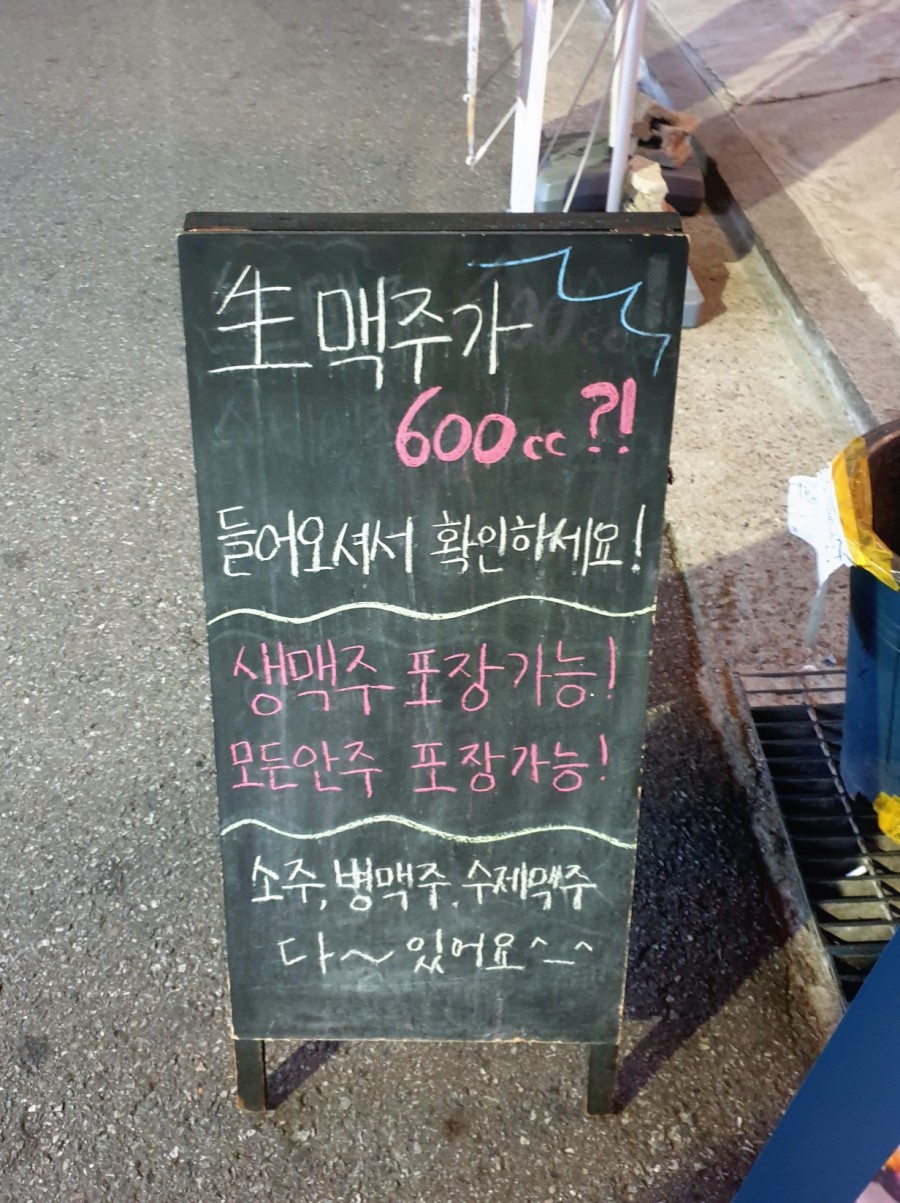 生맥주가
600cc?!
들어오셔서 확인하세요!
생맥주 포장가능!
모든안주 포장가능!
소주, 병맥주. 수제맥주
다~ 있어요^_^